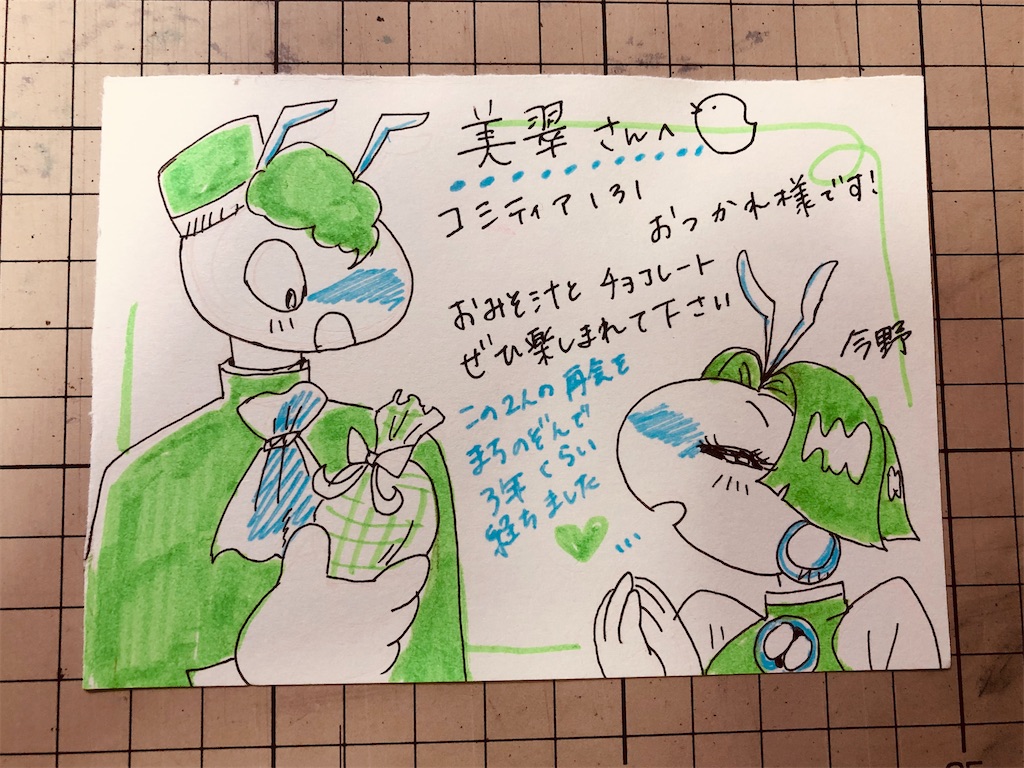 美翠さんへ
コミティア131
おつかれ様です!
おみそ汁と チョコレート
ぜひ楽しまれて下さい
今野
この2人の再会を
まちのぞんで
3年くらい
経ちました
...